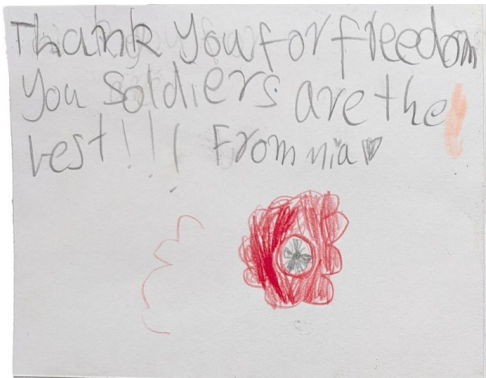 Thank you for freedom
you soldiers are the
best!!! From nia